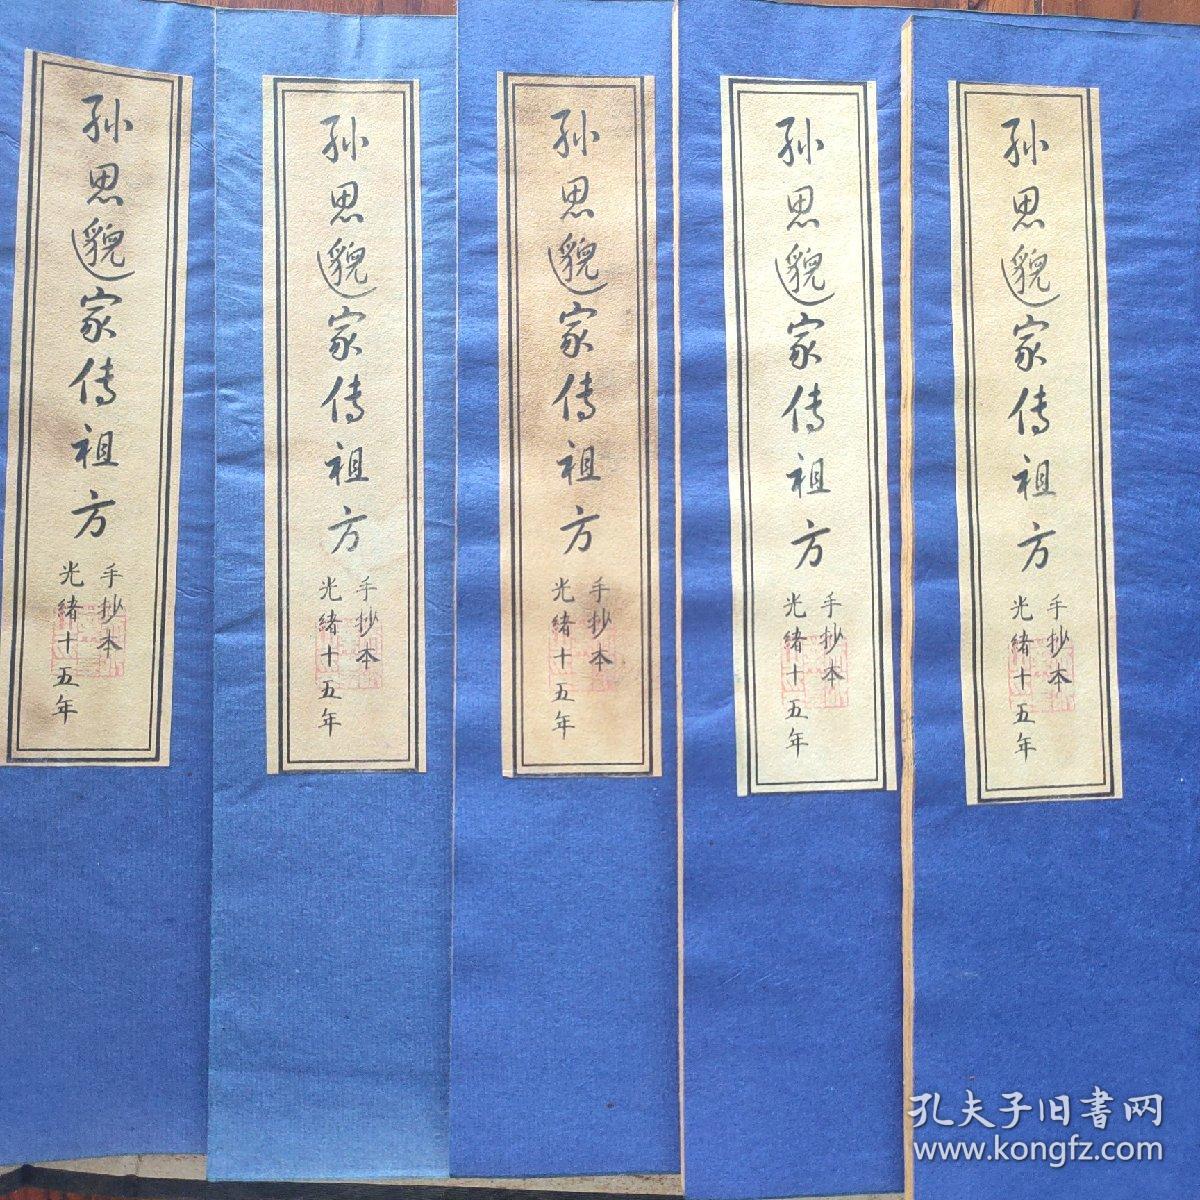 孙思邈家传祖方
手抄本
光緒十五年
孙思邈家传祖方
手抄本
光緒十五年
孙思邈家传祖方
手抄本
光緒十五年
孙思邈家传祖方
手抄本
光緒十五年
孙思邈家传祖方
手抄本
光緒十五年
孔夫子旧書网
www.kongfz.com